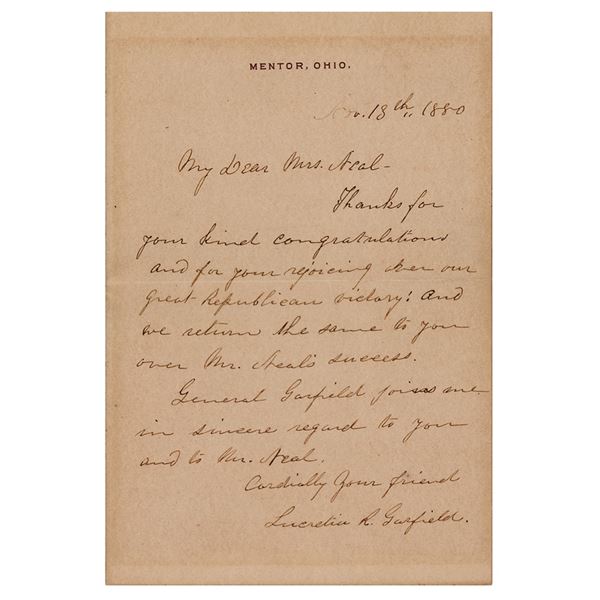 MENTOR, OHIO.
Nov. 13th, 1880
My Dear Mrs. Neal—
Thanks for
your kind congratulations
and for your rejoicing over our
great Republican victory: And
we return the same to you
over Mr. Neal's success.
General Garfield joins me
in sincere regard to you
and to Mr. Neal.
Cordially Your friend
Lucretia R. Garfield.